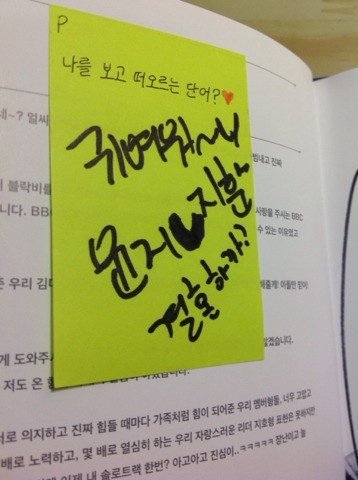 P
나를 보고 떠오르는 단어?♥
귀여워~~
윤지♥지훈
결혼하까?
네~? 얼씨
뽐내고 진짜
블락비를
사랑을 주시는 BBC
니다. BBC
수 있는 이유였고
은 우리 김대
해줄게! 아들만 믿어!
게 도와주시
않겠습니다.
저도 온 힘
서로 의지하고 진짜 힘들 때마다 가족처럼 힘이 되어준 우리 멤버형들, 너무 고맙고
배로 노력하고, 몇 배로 열심히 하는 우리 자랑스러운 리더 지호형 표현은 못하지만
이제 내 솔로트랙 한번? 아고아고 진심이..ㅋㅋㅋㅋㅋ 장난이고 늘